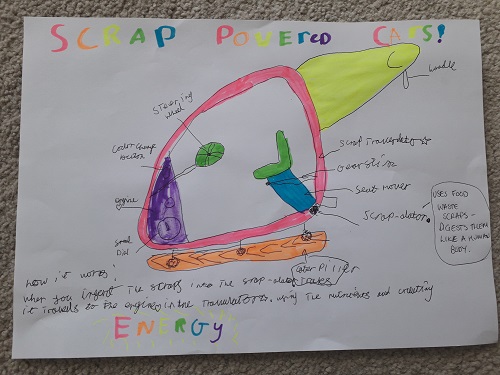 SCRAP POWERED CARS!
Handle
Steering wheel
Color change button
Scrap
Gear
Seat mover
Engine
Scrap-
Small Dial
USES FOOD
WASTE
SCRAPS -
DIGESTS THEM
LIKE A HUMAN
BODY.
Caterpiller
Tracks
how it works!
when you insert the scraps into the scrap-
it travels to the engine in the using the nutrients and creating
ENERGY